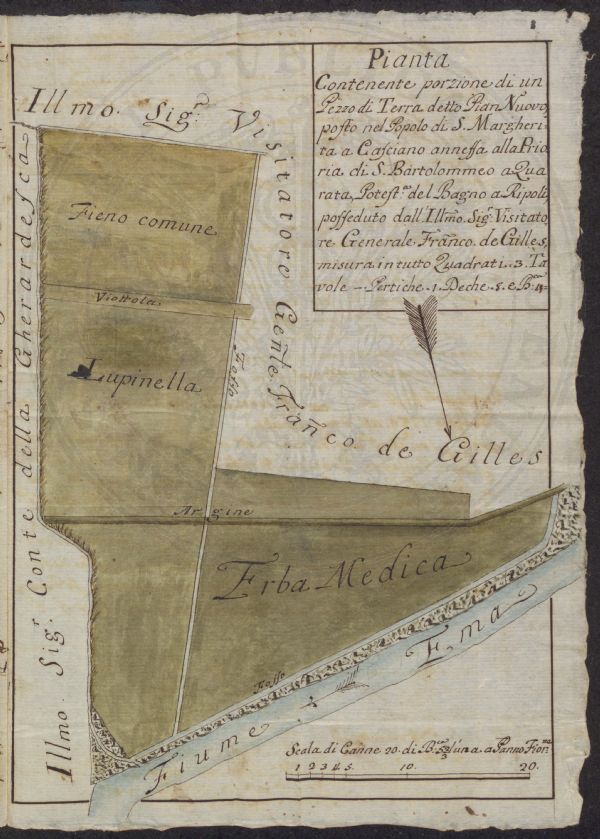 Pianta
Contenente porzione di un
Pezzo di Terra detto Pian Nuovo,
posto nel Popolo di S. Margheri-
ta a Casciano annessa alla Prio
ria di S. Bartolommeo a Qua
rata, Potest.ª del Bagno a Ripoli,
posseduto dall'Illmo. Sig.r Visitato
re Generale Franco. de Gilles,
misura in tutto Quadrati 1. 3. Ta
vole — Pertiche .1. Deche .8. e
Illmo. Sig.r Visitatore Genle. Franco de Gilles
Illmo. Sig.r Conte della Gherardesca
Fieno comune
Viottola
Lupinella
Fosso
Argine
Erba Medica
Fosso
Fiume Ema
Scala di Canne 20. di
a Panno Fior.na
1 2 3 4 5. 10. 20.